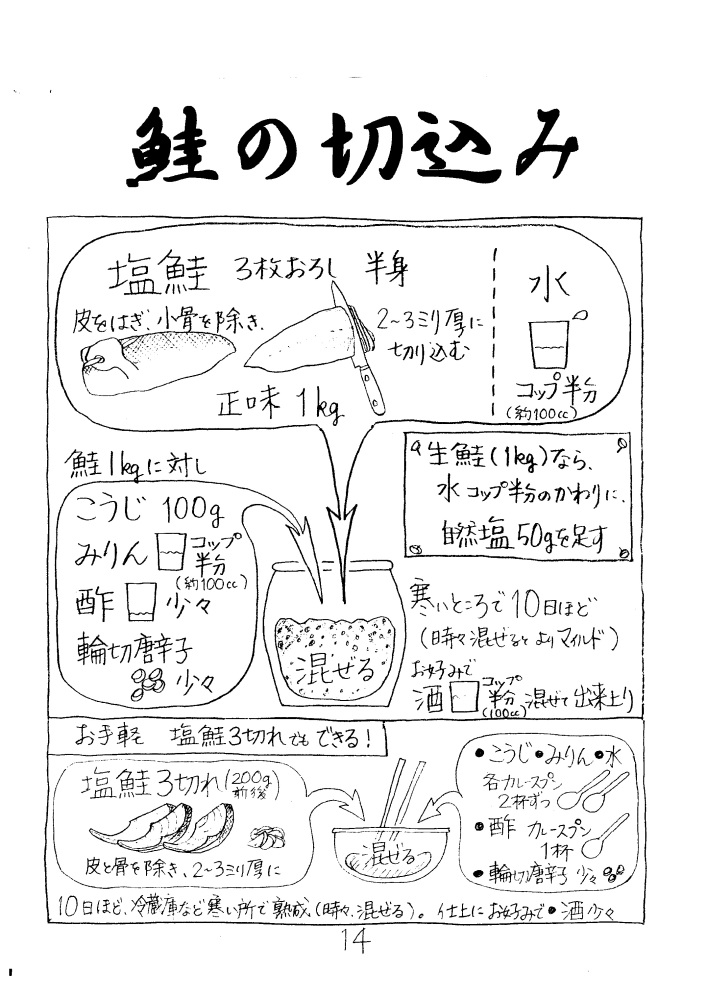 鮭の切込み
塩鮭 3枚おろし 半身
皮をはぎ、小骨を除き、
2~3ミリ厚に
切り込む
正味 1kg
水
コップ半分
(約100cc)
鮭1kgに対し
こうじ 100g
みりん コップ
半分
(約100cc)
酢 少々
輪切唐辛子
少々
生鮭(1kg)なら、
水コップ半分のかわりに、
自然塩50gを足す
混ぜる
寒いところで10日ほど
(時々混ぜると よりマイルド)
お好みで
酒 コップ
半分
(100cc)
混ぜて出来上り
お手軽 塩鮭3切れでもできる!
塩鮭3切れ(200g前後)
皮と骨を除き、2~3ミリ厚に
混ぜる
●こうじ●みりん●水
各カレースプン
2杯ずつ
●酢 カレースプン
1杯
●輪切唐辛子 少々
10日ほど、冷蔵庫など寒い所で熟成(時々、混ぜる)。仕上にお好みで●酒少々
14